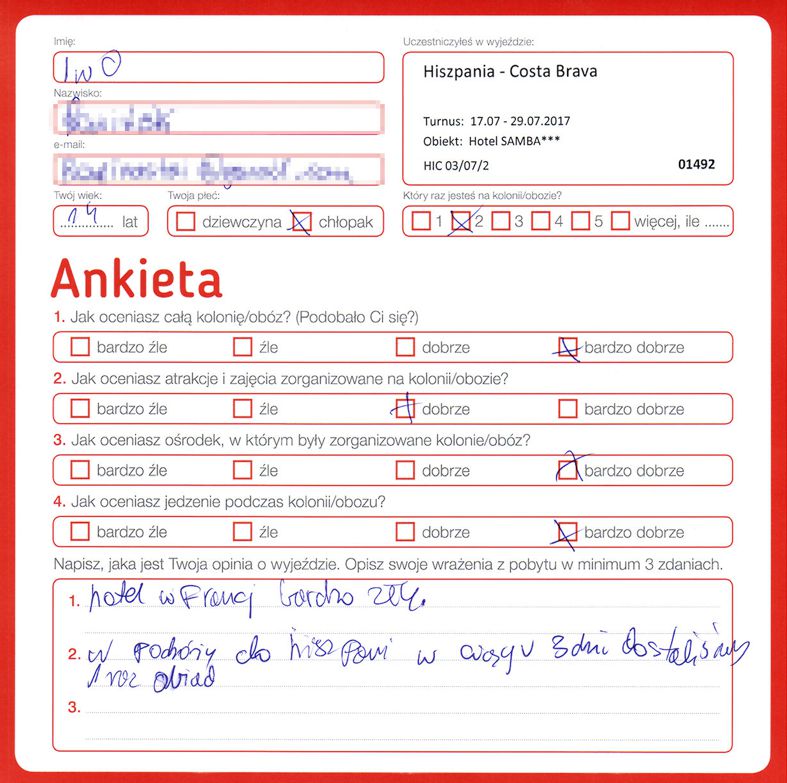 Imię:
Uczestniczyłeś w wyjeździe:
Iwo
Hiszpania - Costa Brava
Nazwisko:
Turnus: 17.07 - 29.07.2017
Obiekt: Hotel SAMBA***
e-mail:
HIC 03/07/2 01492
Twój wiek: Twoja płeć: Który raz jesteś na kolonii/obozie?
14 lat dziewczyna chłopak 1 2 3 4 5 więcej, ile .......
Ankieta
1. Jak oceniasz całą kolonię/obóz? (Podobało Ci się?)
bardzo źle źle dobrze bardzo dobrze
2. Jak oceniasz atrakcje i zajęcia zorganizowane na kolonii/obozie?
bardzo źle źle dobrze bardzo dobrze
3. Jak oceniasz ośrodek, w którym były zorganizowane kolonie/obóz?
bardzo źle źle dobrze bardzo dobrze
4. Jak oceniasz jedzenie podczas kolonii/obozu?
bardzo źle źle dobrze bardzo dobrze
Napisz, jaka jest Twoja opinia o wyjeździe. Opisz swoje wrażenia z pobytu w minimum 3 zdaniach.
1. hotel w Francj bardzo zły.
2. w podróży do hiszpani w czasyu 3 dni dostaliśmy
1 raz obiad
3.